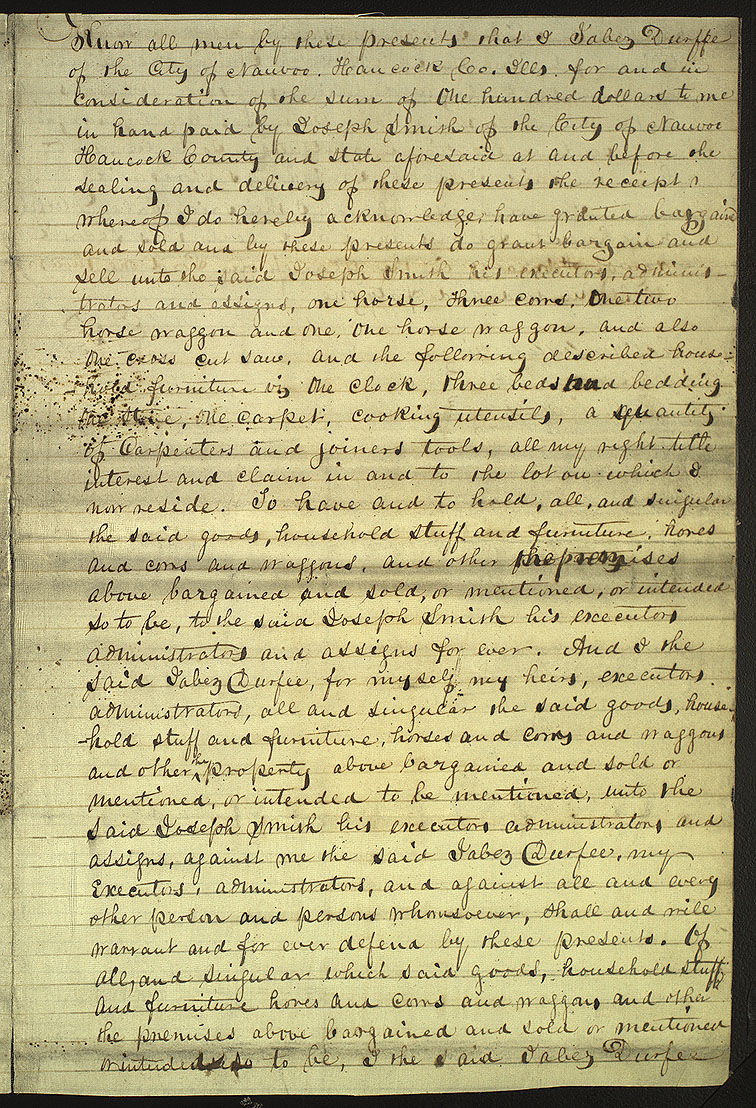 Know all men by these presents that I Jabez Durffe
of the City of Nauvoo. Hancock Co. Ills. for and in
consideration of the sum of One hundred dollars to me
in hand paid by Joseph Smith of the City of Nauvoo
Hancock County and state aforesaid at and before the
sealing and delivery of these presents the receipt
whereof I do hereby acknowledge, have granted bargained
and sold and by these presents do grant bargain and
sell unto the said Joseph Smith his executors, adminis-
trators and assigns, one horse, three cows, One two
horse waggon and one, one horse waggon, and also
one cross cut saw, and the following described house-
hold furniture viz One clock, three beds and bedding
one stove, one carpet, cooking utensils, a quantity
of Carpenters and joiners tools, all my right title
interest and claim in and to the lot on which I
now reside. To have and to hold, all, and singular
the said goods, household stuff and furniture, horses
and cows and waggons, and other the premises
above bargained and sold, or mentioned, or intended
so to be, to the said Joseph Smith his executors
administrators and assigns for ever. And I the
said Jabez Durfee, for myself, my heirs, executors
administrators, all and singular the said goods, house-
-hold stuff and furniture, horses and cows and waggons
and other the property above bargained and sold or
mentioned, or intended to be mentioned, unto the
said Joseph Smith his executors administrators and
assigns, against me the said Jabez Durfee, my
Executors, administrators, and against all and every
other person and persons whomsoever, shall and will
warrant and for ever defend by these presents. Of
all, and singular which said goods, household stuff
and furniture horses and cows and waggons and other
the premises above bargained and sold or mentioned
or intended so to be, I the said Jabez Durfee